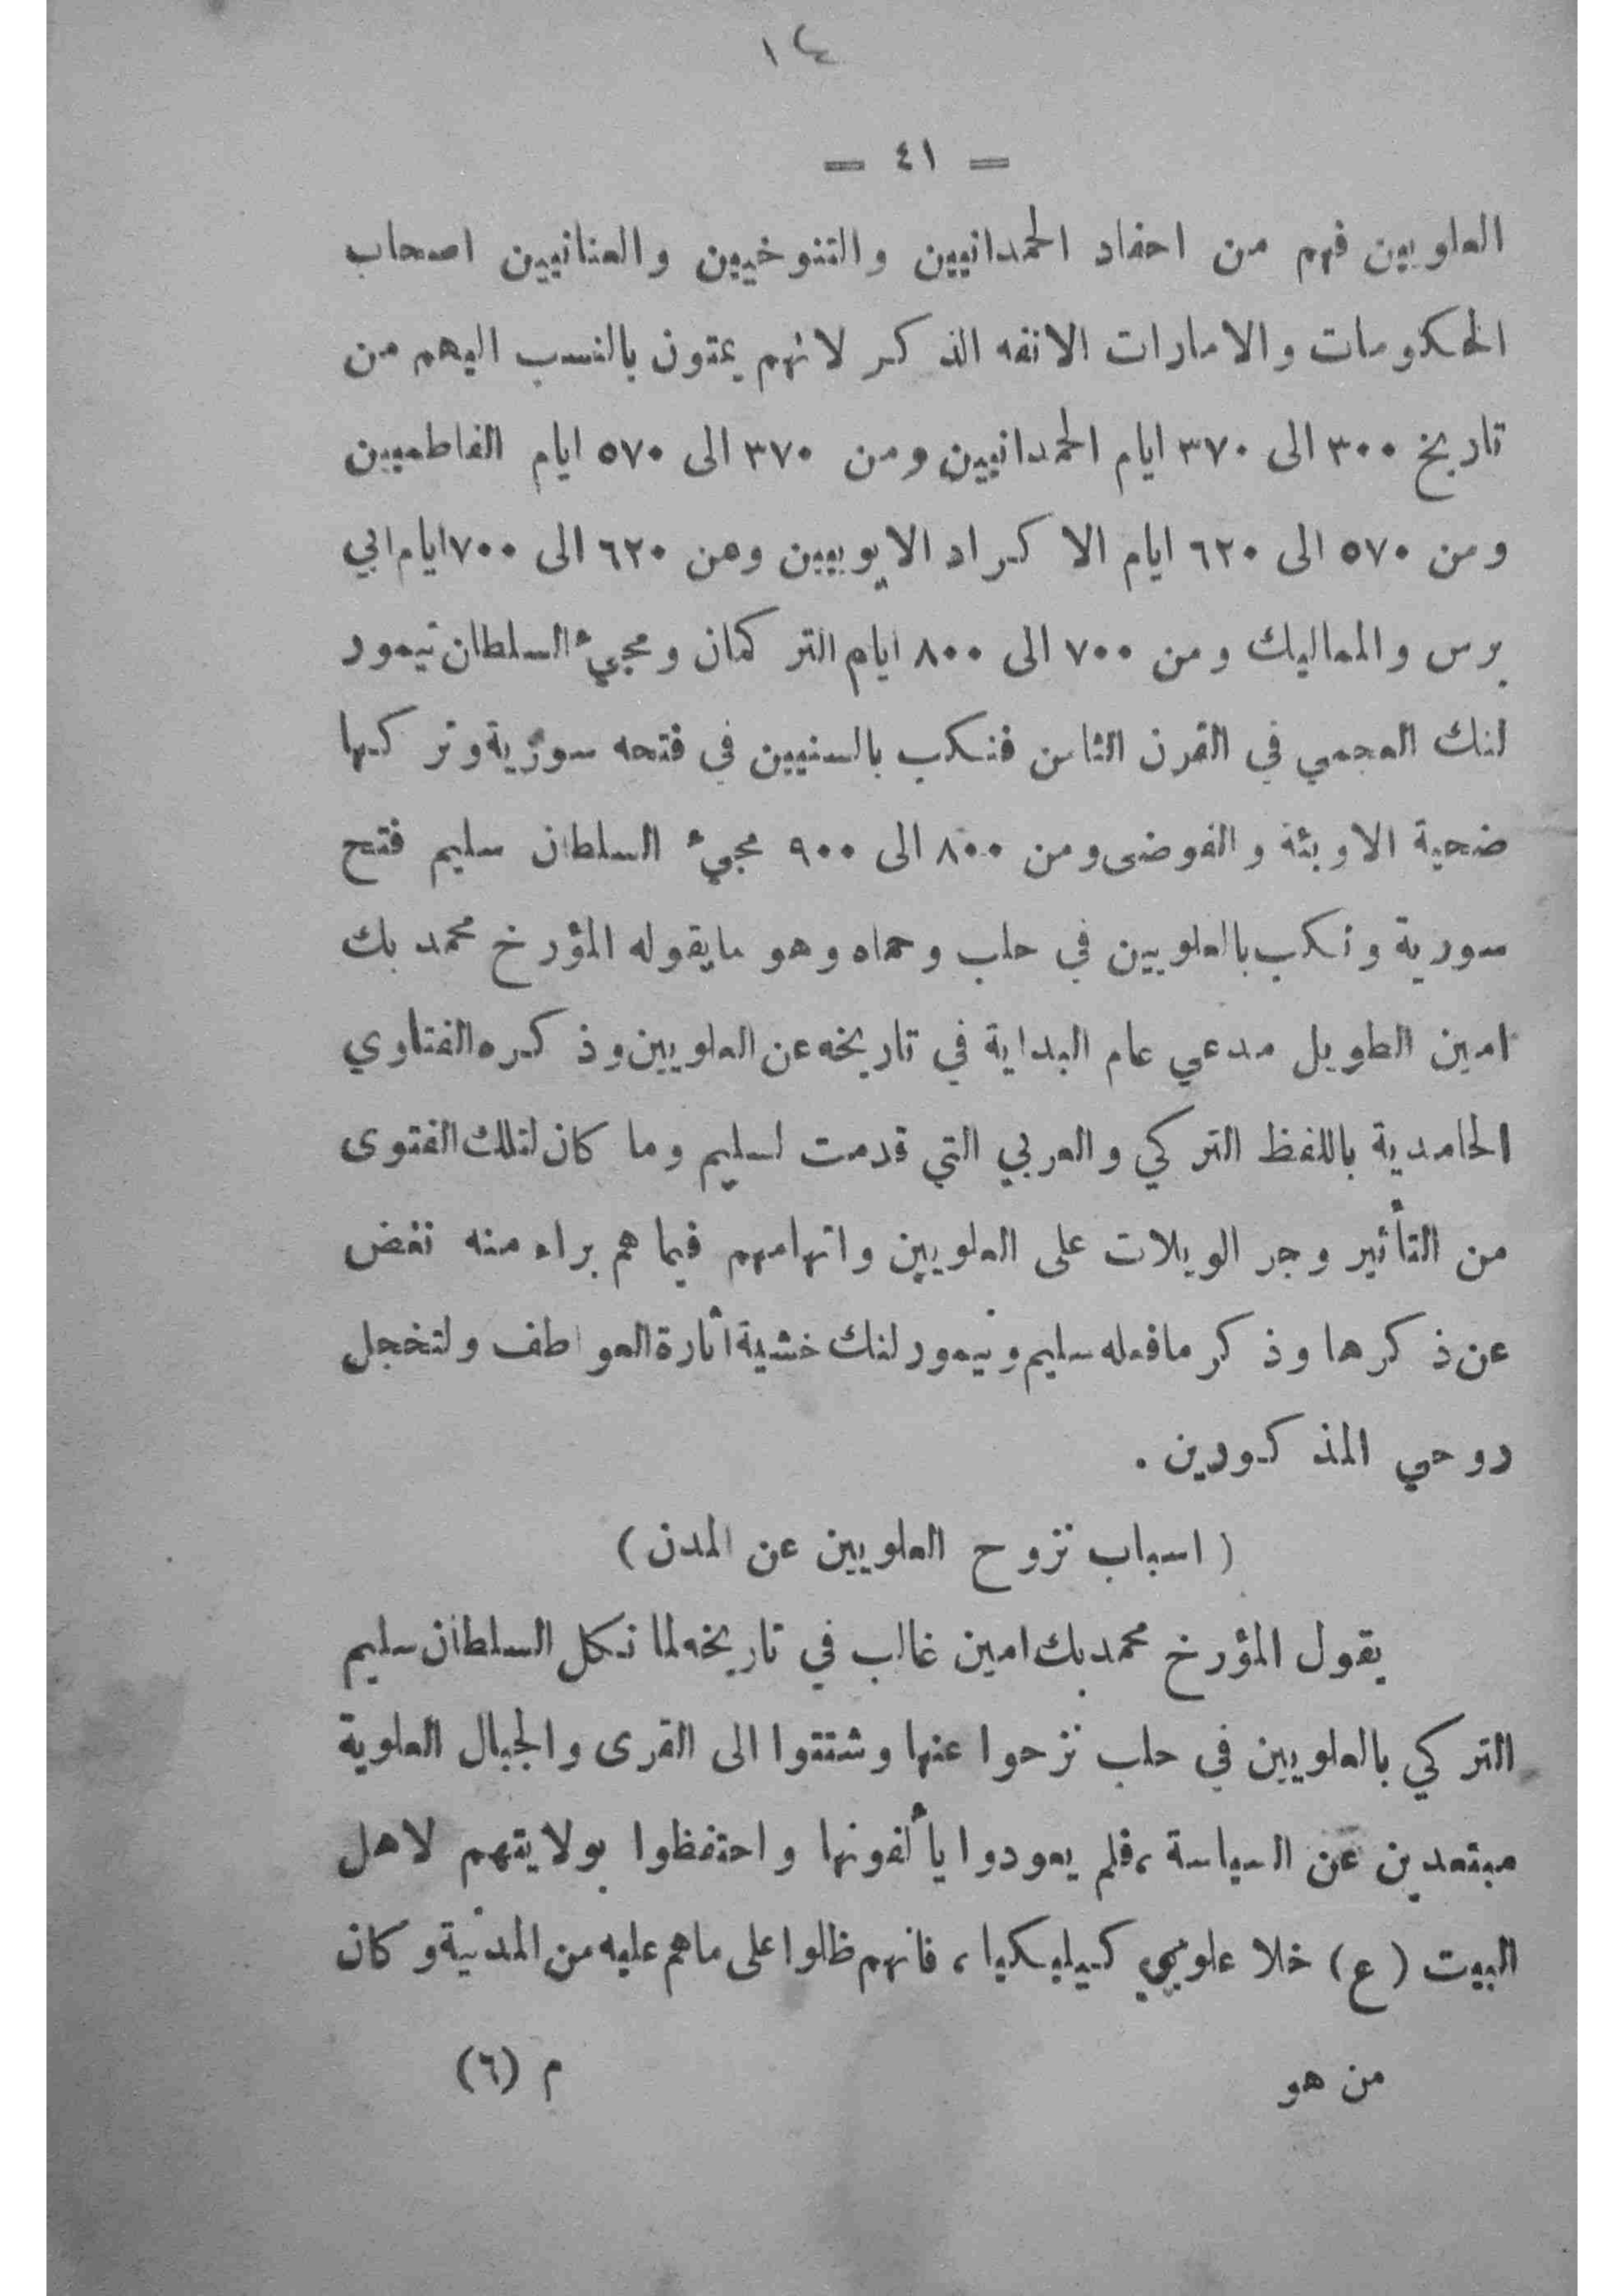 ١٤
— ٤١ —
العلويين فهم من احفاد الحمدانيين والتنوخيين والعنانيين اصحاب
الحكومات والامارات الانفه الذكر لانهم يمتون بالنسب اليهم من
تاريخ ٣٠٠ الى ٣٧٠ ايام الحمدانيين ومن ٣٧٠ الى ٥٧٠ ايام الفاطميين
ومن ٥٧٠ الى ٦٢٠ ايام الاكراد الايوبيين ومن ٦٢٠ الى ٧٠٠ ايام ابي
برس والمماليك ومن ٧٠٠ الى ٨٠٠ ايام التركمان ومجيء السلطان تيمور
لنك العجمي في القرن الثامن فنكب بالسنيين في فتحه سورية وتركها
ضحية الاوبئة والفوضى ومن ٨٠٠ الى ٩٠٠ مجيء السلطان سليم فتح
سورية ونكب بالعلويين في حلب وحماه وهو ما يقوله المؤرخ محمد بك
امين الطويل مدعي عام البداية في تاريخه عن العلويين وذكره الفتاوي
الحامدية باللفظ التركي والعربي التي قدمت لسليم وما كان لتلك الفتوى
من التأثير وجر الويلات على العلويين واتهامهم فيما هم براء منه نغض
عن ذكرها وذكر ما فعله سليم وتيمور لنك خشية اثارة العواطف ولتخجل
روحي المذكورين .
( اسباب نزوح العلويين عن المدن )
يقول المؤرخ محمد بك امين غالب في تاريخه لما نكل السلطان سليم
التركي بالعلويين في حلب نزحوا عنها وشتتوا الى القرى والجبال العلوية
مبتعدين عن السياسة ، فلم يعودوا يألفونها واحتفظوا بولايتهم لاهل
البيت ( ع ) خلا علويي كيليكيا ، فانهم ظلوا على ماهم عليه من المدنية وكان
من هو م (٦)